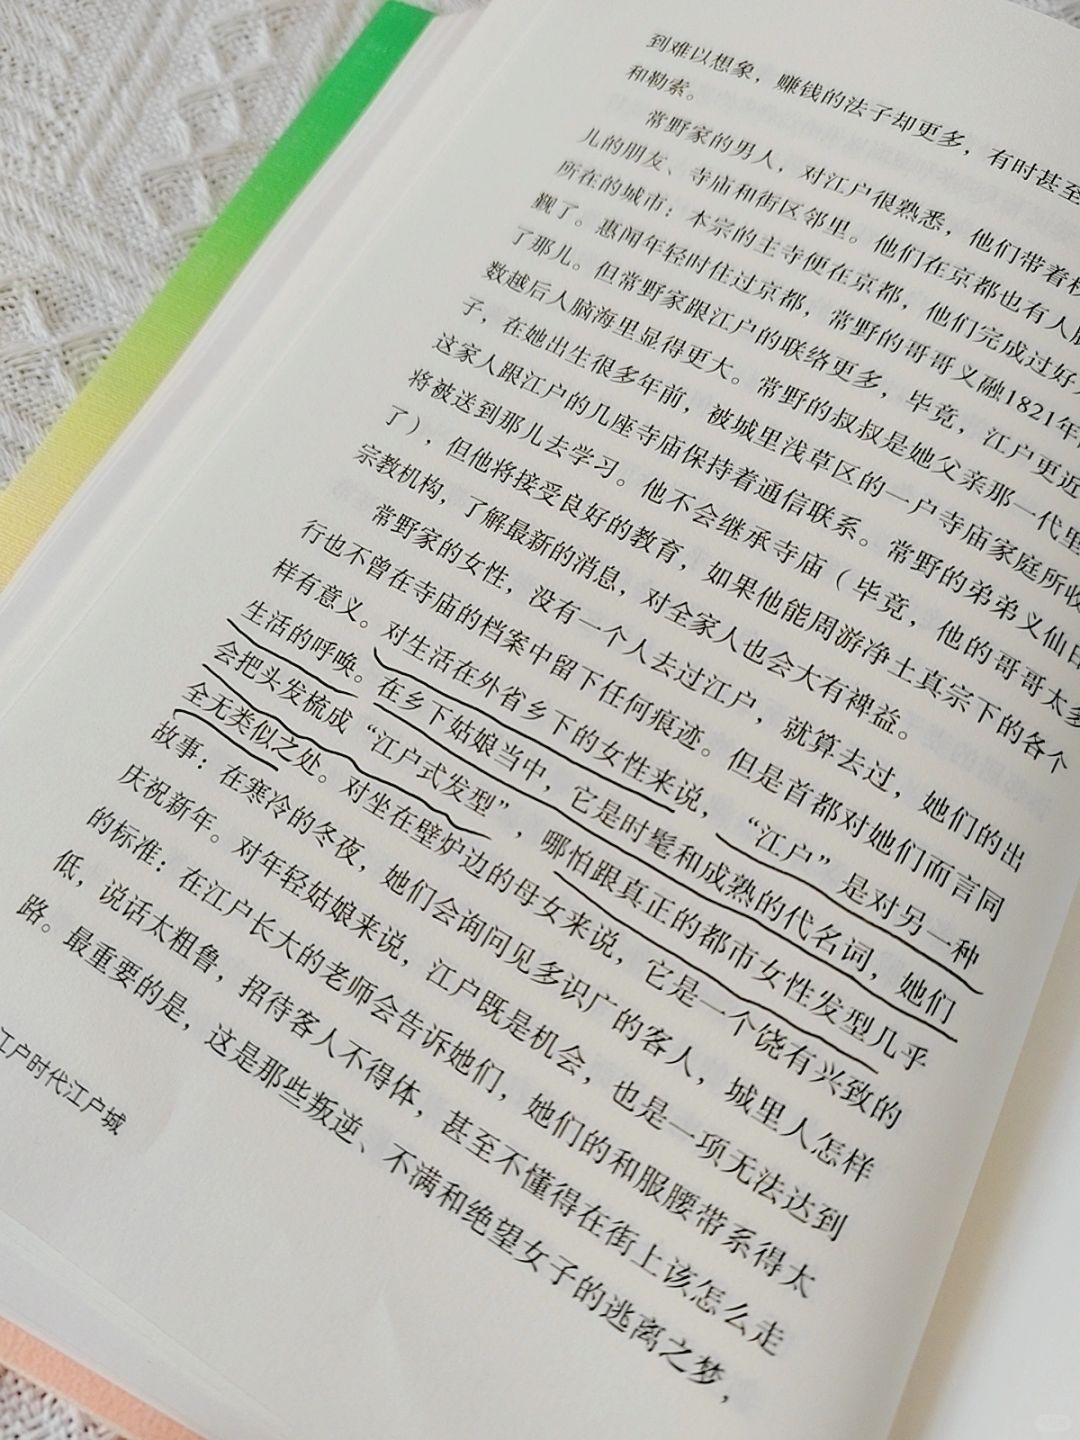 到难以想象，赚钱的法子却更多，有时甚至
和勒索。
常野家的男人，对江户很熟悉，他们带着
儿的朋友、寺庙和街区邻里。他们在京都也有人
所在的城市：本宗的主寺便在京都，他们完成过好
觐了。惠闻年轻时住过京都，常野的哥哥义融1821年
了那儿。但常野家跟江户的联络更多，毕竟，江户更近
数越后人脑海里显得更大。常野的叔叔是她父亲那一代里
子，在她出生很多年前，被城里浅草区的一户寺庙家庭所收
这家人跟江户的几座寺庙保持着通信联系。常野的弟弟义仙日
将被送到那儿去学习。他不会继承寺庙（毕竟，他的哥哥太多
了），但他将接受良好的教育，如果他能周游净土真宗下的各个
宗教机构，了解最新的消息，对全家人也会大有裨益。
常野家的女性，没有一个人去过江户，就算去过，她们的出
行也不曾在寺庙的档案中留下任何痕迹。但是首都对她们而言同
样有意义。对生活在外省乡下的女性来说，“江户”是对另一种
生活的呼唤。在乡下姑娘当中，它是时髦和成熟的代名词，她们
会把头发梳成“江户式发型”，哪怕跟真正的都市女性发型几乎
全无类似之处。对坐在壁炉边的母女来说，它是一个饶有兴致的
故事：在寒冷的冬夜，她们会询问见多识广的客人，城里人怎样
庆祝新年。对年轻姑娘来说，江户既是机会，也是一项无法达到
的标准：在江户长大的老师会告诉她们，她们的和服腰带系得太
低，说话太粗鲁，招待客人不得体，甚至不懂得在街上该怎么走
路。最重要的是，这是那些叛逆、不满和绝望女子的逃离之梦，
江户时代江户城